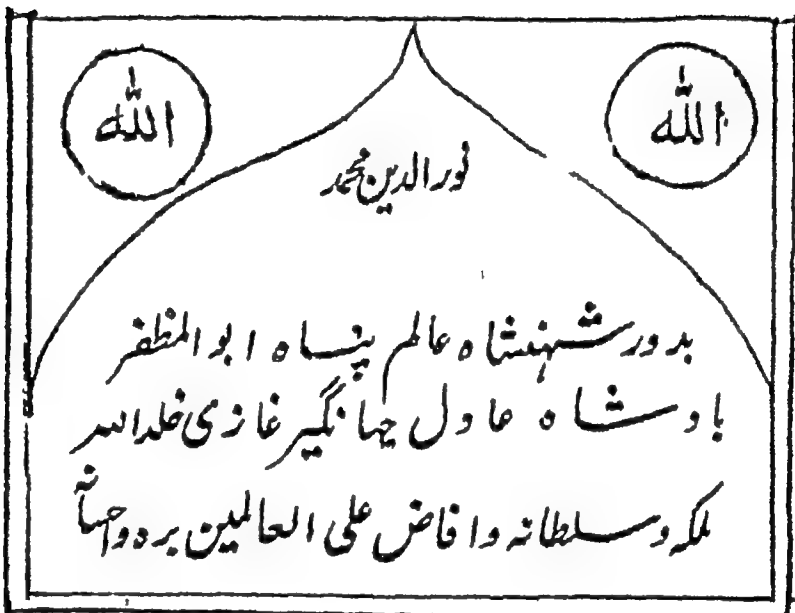 الله
الله
نور الدین محمد
بدور شہنشاہ عالم پناہ ابو المظفر
بادشاہ عادل جہانگیر غازی خلد اللہ
ملکہ و سلطانہ و افاض علی العالمین برہ و احسانہ